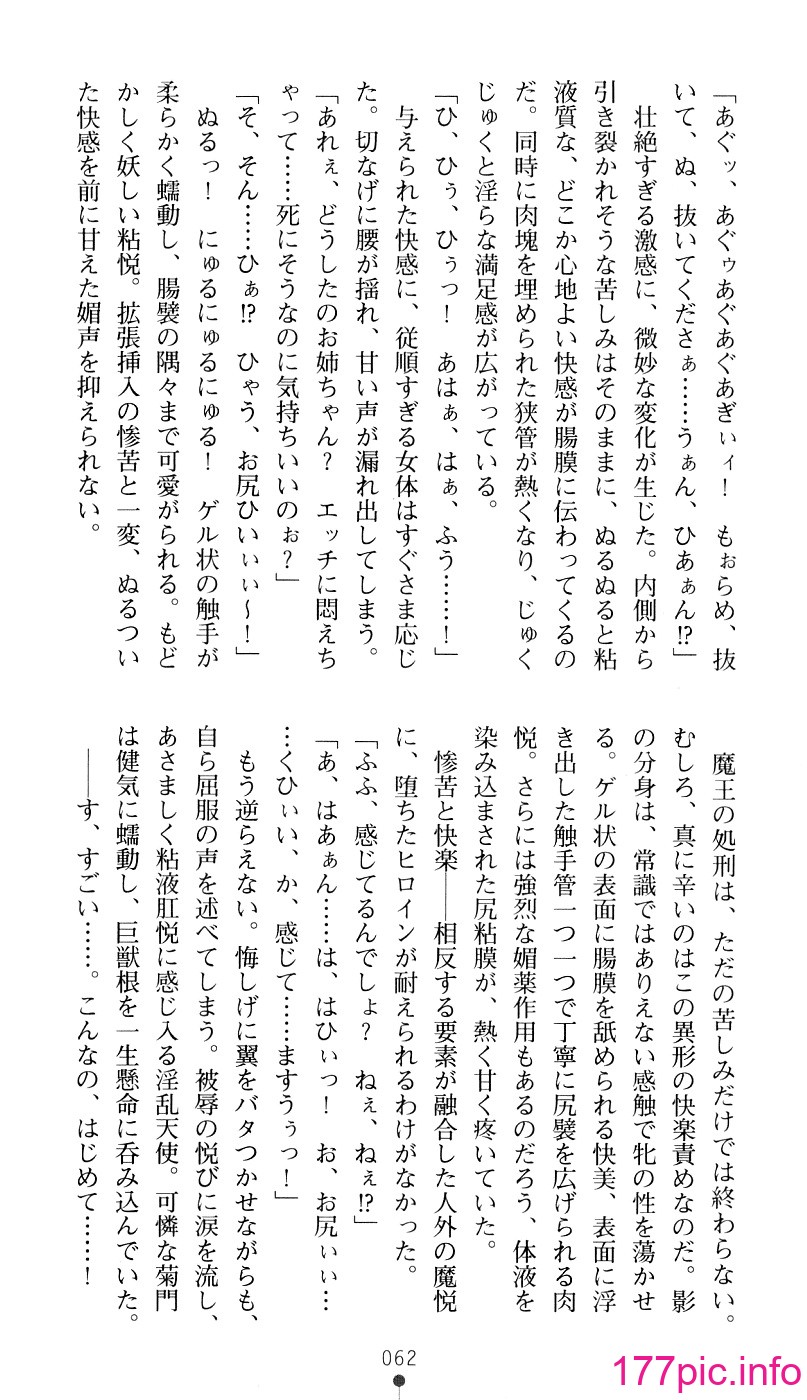 「あぐッ、あぐぅあぐあぐあぎぃィ！　もぉらめ、抜
いて、ぬ、抜いてくださぁ……うぁん、ひあぁん!?」
　壮絶すぎる激感に、微妙な変化が生じた。内側から
引き裂かれそうな苦しみはそのままに、ぬるぬると粘
液質な、どこか心地よい快感が腸膜に伝わってくるの
だ。同時に肉塊を埋められた狭管が熱くなり、じゅく
じゅくと淫らな満足感が広がっている。
「ひ、ひぅ、ひぅっ！　あはぁ、はぁ、ふう……！」
　与えられた快感に、従順すぎる女体はすぐさま応じ
た。切なげに腰が揺れ、甘い声が漏れ出してしまう。
「あれぇ、どうしたのお姉ちゃん？　エッチに悶えち
ゃって……死にそうなのに気持ちいいのぉ？」
「そ、そん……ひぁ!?　ひゃう、お尻ひいぃぃ～！」
　ぬるっ！　にゅるにゅるにゅる！　ゲル状の触手が
柔らかく蠕動し、腸襞の隅々まで可愛がられる。もど
かしく妖しい粘悦。拡張挿入の惨苦と一変、ぬるつい
た快感を前に甘えた媚声を抑えられない。
　魔王の処刑は、ただの苦しみだけでは終わらない。
むしろ、真に辛いのはこの異形の快楽責めなのだ。影
の分身は、常識ではありえない感触で牝の性を蕩かせ
る。ゲル状の表面に腸膜を舐められる快美、表面に浮
き出した触手管一つ一つで丁寧に尻襞を広げられる肉
悦。さらには強烈な媚薬作用もあるのだろう、体液を
染み込まされた尻粘膜が、熱く甘く疼いていた。
　惨苦と快楽――相反する要素が融合した人外の魔悦
に、堕ちたヒロインが耐えられるわけがなかった。
「ふふ、感じてるんでしょ？　ねぇ、ねぇ!?」
「あ、はあぁん……は、はひぃっ！　お、お尻ぃぃ…
…くひぃい、か、感じて……ますうぅっ！」
　もう逆らえない。悔しげに翼をバタつかせながらも、
自ら屈服の声を述べてしまう。被辱の悦びに涙を流し、
あさましく粘液肛悦に感じ入る淫乱天使。可憐な菊門
は健気に蠕動し、巨獣根を一生懸命に呑み込んでいた。
　――す、すごい……。こんなの、はじめて……！
062
177pic.info